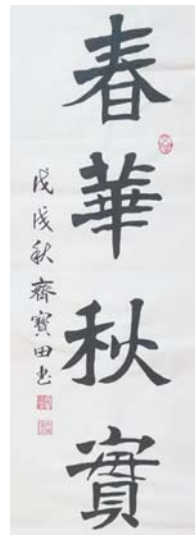 春華秋實
戊戌秋齊寶田书